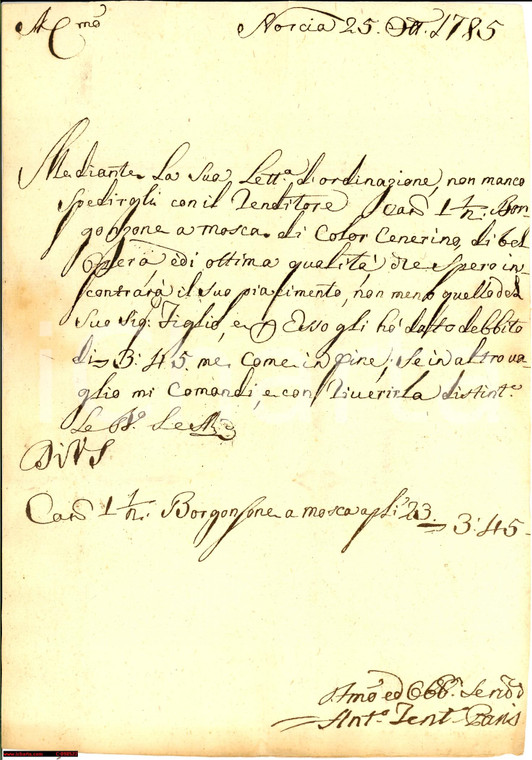 A Cmo Norcia 25. Ott. 1785
Mediante La Sua Letta. d'ordinazione, non manco
Spedirgli con il Venditore Can 1 1/2: Bor-
gonzone a mosca di Color Cenerino, di bel
Opera, ed'ottima qualità, che spero in-
contrarà il suo piacimento, non meno quello del
Suo Sig: Figlio, e Esso gli hò dato debbito
di 3:45 me, come in pine, se in altro va-
glio mi Comandi, e con riverirla distinte.
Le B.
DiVS
Can 1 1/2: Borgonzone a mosca a 23. 3:45
ed Obb.
Anto.